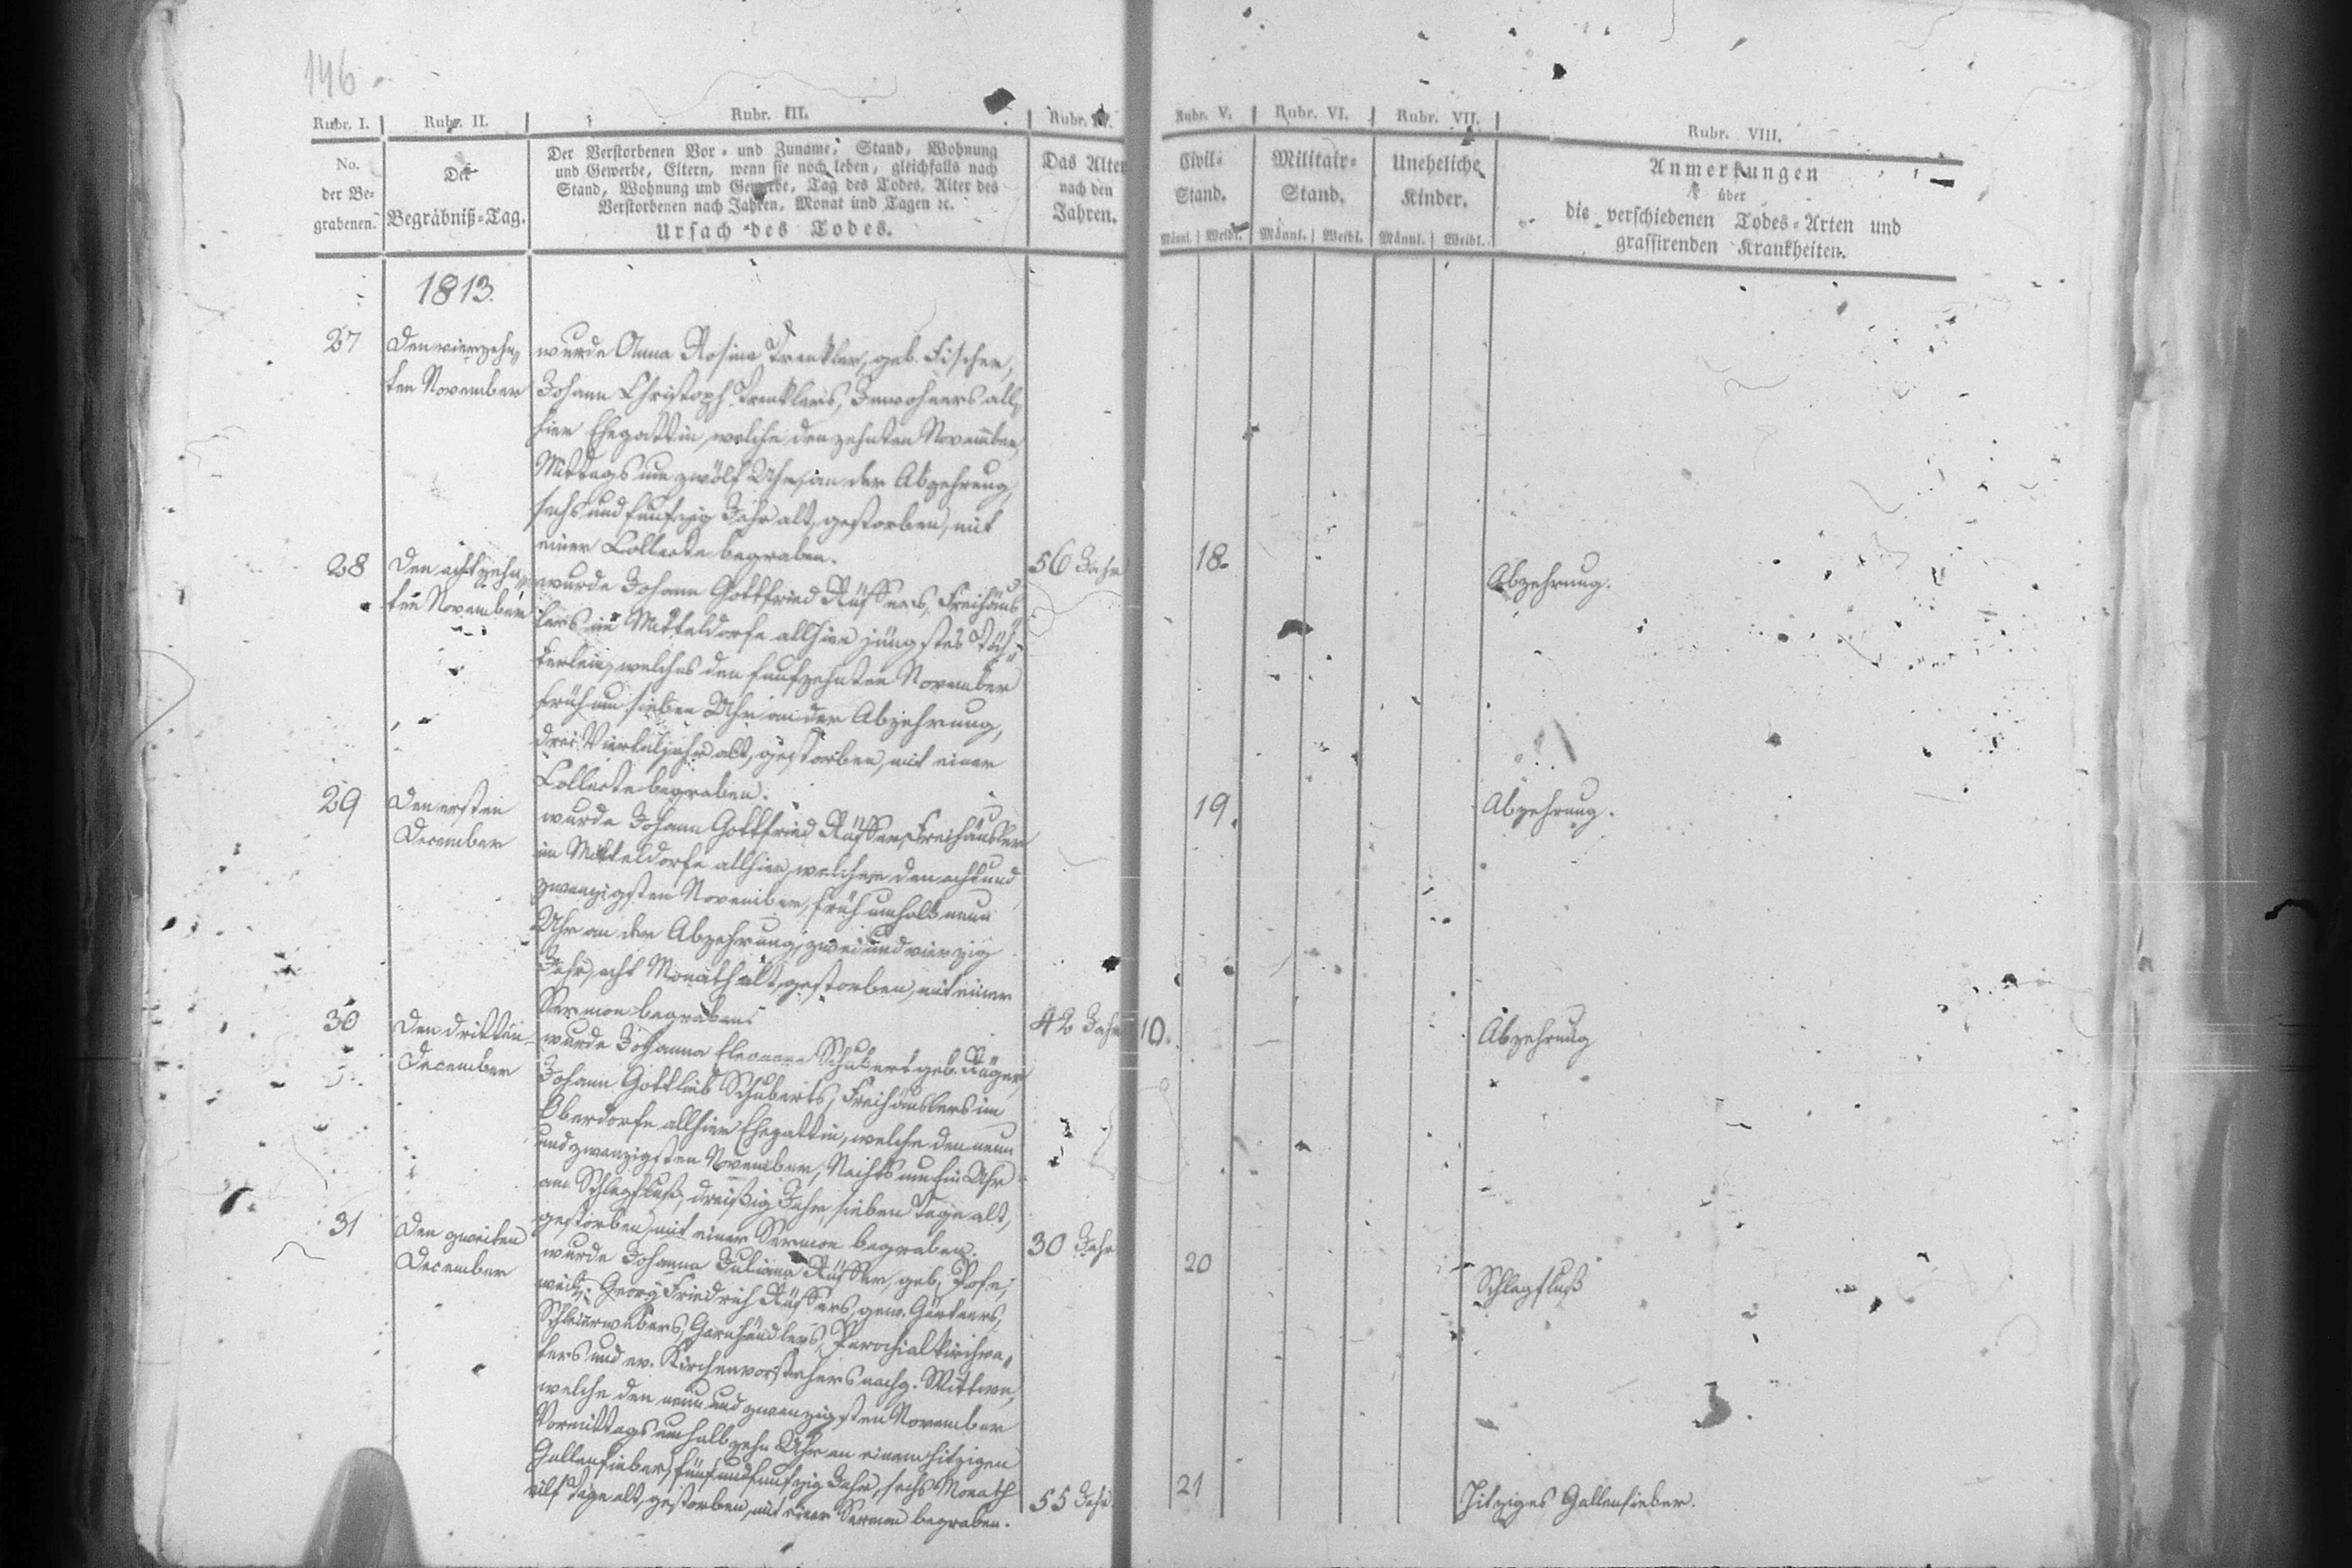 146.
Rubr. I. Rubr. II. Rubr. III. Rubr. IV. Rubr. V. Rubr. VI. Rubr. VII. Rubr. VIII.
No.
der Be-
grabenen.
Der
Begräbniß-Tag.
Der Verstorbenen Vor- und Zuname, Stand, Wohnung
und Gewerbe, Eltern, wenn sie noch leben, gleichfalls nach
Stand, Wohnung und Gewerbe, Tag des Todes, Alter des
Verstorbenen nach Jahren, Monat und Tagen ꝛc.
Ursach des Todes.
Das Alter
nach den
Jahren.
Civil-
Stand.
Männl. Weibl.
Militair-
Stand.
Männl. Weibl.
Uneheliche
Kinder.
Männl. Weibl.
Anmerkungen
über
die verschiedenen Todes-Arten und
grassirenden Krankheiten.
1813.
27
Den vierzehn-
ten November
wurde Anna Rosina Trenkler, geb. Fischer,
Johann Christoph Trenklers, Inwohners all-
hier Ehegattin, welche den zehnten November
Mittags um zwölf Uhr, an der Abzehrung,
sechs und funfzig Jahr alt, gestorben, mit
einer Collecte begraben.
56 Jahr
18.
Abzehrung.
28
Den achtzehn-
ten November
wurde Johann Gottfried Rüffers, Freihäus-
lers im Mitteldorfe allhier jüngstes Töch-
terlein, welches den funfzehnten November
früh um sieben Uhr an der Abzehrung,
drei Vierteljahr alt, gestorben, mit einer
Collecte begraben.
19.
Abzehrung.
29
Den ersten
December
wurde Johann Gottfried Rüffer, Freihäusler
im Mitteldorfe allhier, welcher den acht und
zwanzigsten November, früh um halb neun
Uhr an der Abzehrung, zwei und vierzig
Jahr, acht Monath alt, gestorben, mit einer
Sermon begraben.
42 Jahr
10.
Abzehrung
30
Den dritten
December
wurde Johanna Eleonora Schubert geb.
Johann Gottlieb Schuberts, Freihäuslers im
Oberdorfe allhier Ehegattin, welche den neun
und zwanzigsten November, Nachts um Ein Uhr
am Schlagfluß, dreißig Jahr, sieben Tage alt,
gestorben, mit einer Sermon begraben.
30 Jahr
20
Schlagfluß
31
Den zweiten
December
wurde Johanna Juliana Rüffer, geb.
weil. Georg Friedrich Rüffers, gew. Gärtners,
Schleierwebers, Garnhändlers, Parochialkirchva-
ters und ev. Kirchenvorstehers nachg. Wittwe,
welche den neun und zwanzigsten November
Vormittags um halb zehn Uhr an einem hitzigen
Gallenfieber, fünf und funfzig Jahr, sechs Monath
eilf Tage alt, gestorben, mit einer Sermon begraben.
55 Jahr.
21
Hitziges Gallenfieber.